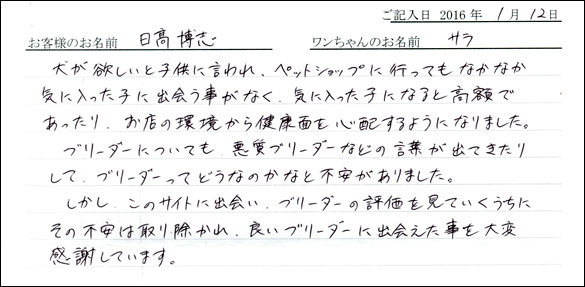 ご記入日 2016 年 1 月 12 日
お客様のお名前 日高 博志 ワンちゃんのお名前 サラ
犬が欲しいと子供に言われ、ペットショップに行ってもなかなか
気に入った子に出会う事がなく、気に入った子になると高額で
あったり、お店の環境から健康面を心配するようになりました。
ブリーダーについても、悪質ブリーダーなどの言葉が出てきたり
して、ブリーダーってどうなのかなと不安がありました。
しかし、このサイトに出会い、ブリーダーの評価を見ていくうちに
その不安は取り除かれ、良いブリーダーに出会えた事を大変
感謝しています。